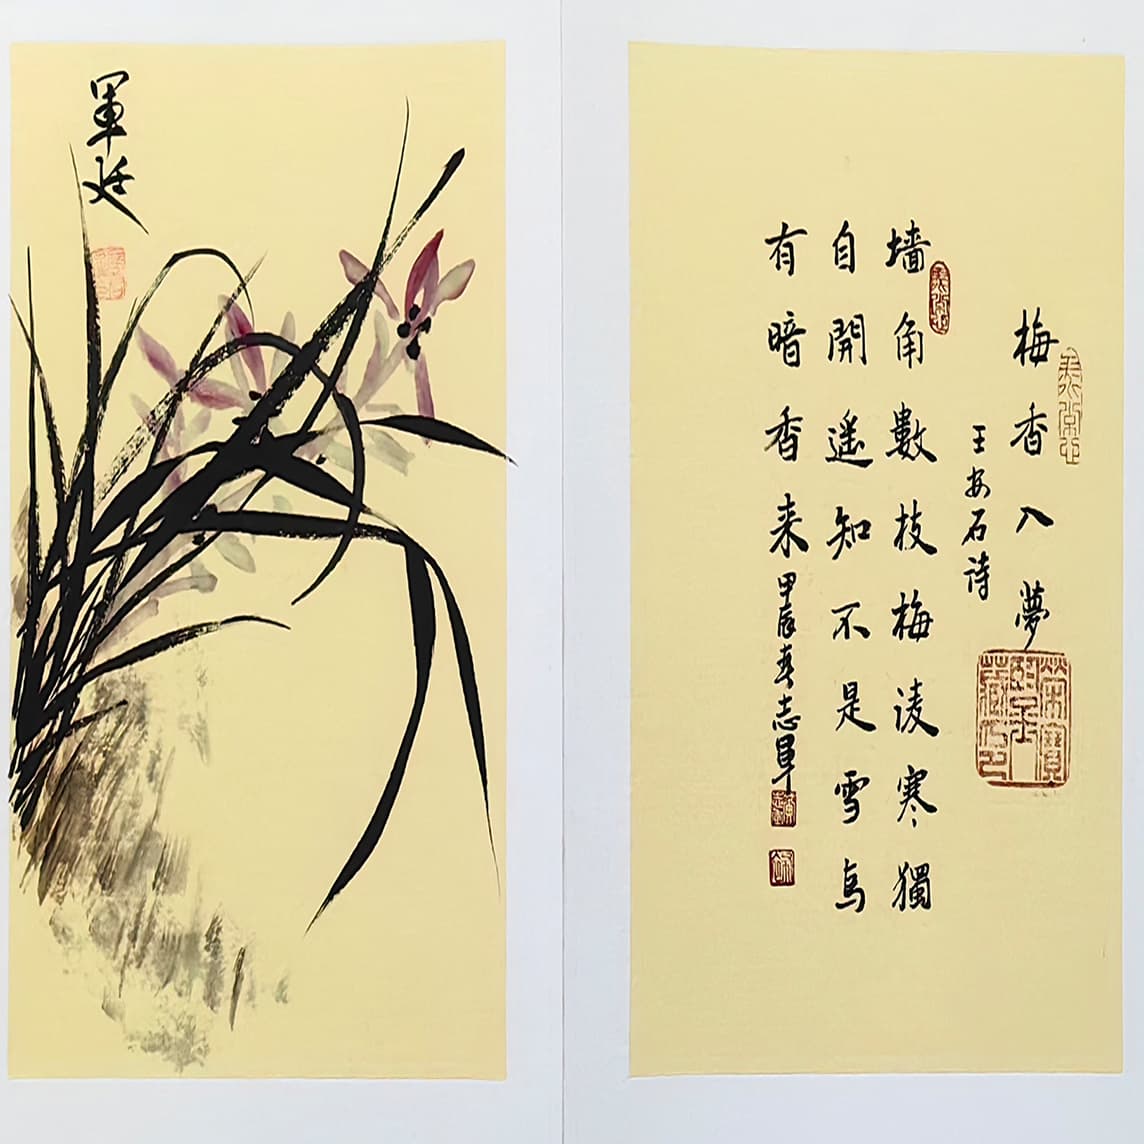 梅香入夢
王安石诗
墙角數枝梅凌寒獨
自開遥知不是雪為
有暗香来甲辰春志
軍廷